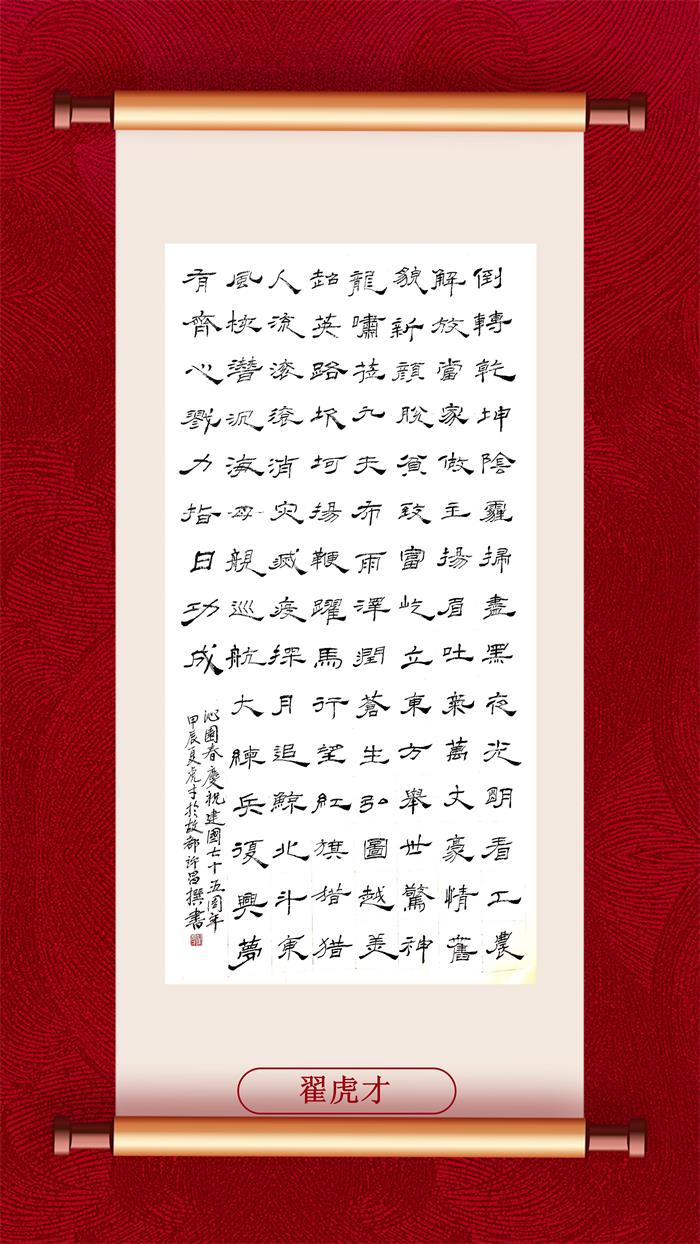 倒轉乾坤陰霾掃盡黑夜光明看工農
解放當家做主揚眉吐氣萬丈豪情舊
貌新顏脫貧致富屹立東方舉世驚神
龍嘯莅九天布雨澤潤蒼生弘圖越美
超英路坎坷揚鞭躍馬行望紅旗猎猎
人流滾滾消灾滅疫探月追鯨北斗東
風核潛沉海母親巡航大練兵復興夢
有齊心戮力指日功成
沁園春慶祝建國七十五周年
甲辰夏虎才於故都許昌撰書
翟虎才